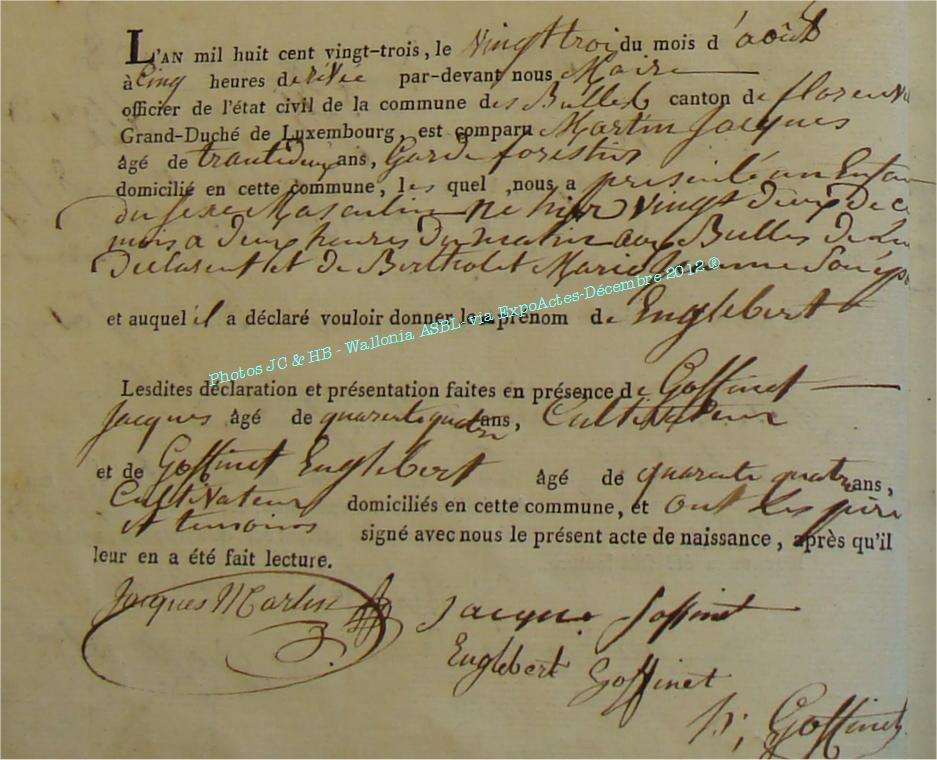 L'AN mil huit cent vingt-trois, le vingt troi du mois d'août
à Cinq heures de rélévée par-devant nous Maire
officier de l'état civil de la commune des Bulles canton de florenvi
Grand-Duché de Luxembourg, est comparu Martin Jacques
âgé de trante deux ans, Garde forestier
domicilié en cette commune, les quel ,nous a présenté un Enfan
du sexe Masculin né hier vingt deux de ce
mois a deux heures du matin aux Bulles de Lui
Déclarent et de Bertholet Marie son épo
et auquel il a déclaré vouloir donner le prénom de Englebert
Photos JC & HB - Wallonia ASBL-via ExpoActes-Décembre 2012®
Lesdites déclaration et présentation faites en présence de Goffinet
Jacques âgé de quarente quatre ans, Cultivateur
et de Goffinet Englebert âgé de quarente quatre ans,
Cultivateur domiciliés en cette commune, et ont Les père
et temoins signé avec nous le présent acte de naissance, après qu'il
leur en a été fait lecture.
Jacques Martin
Jacque Goffinet
Englebert Goffinet
Goffinet